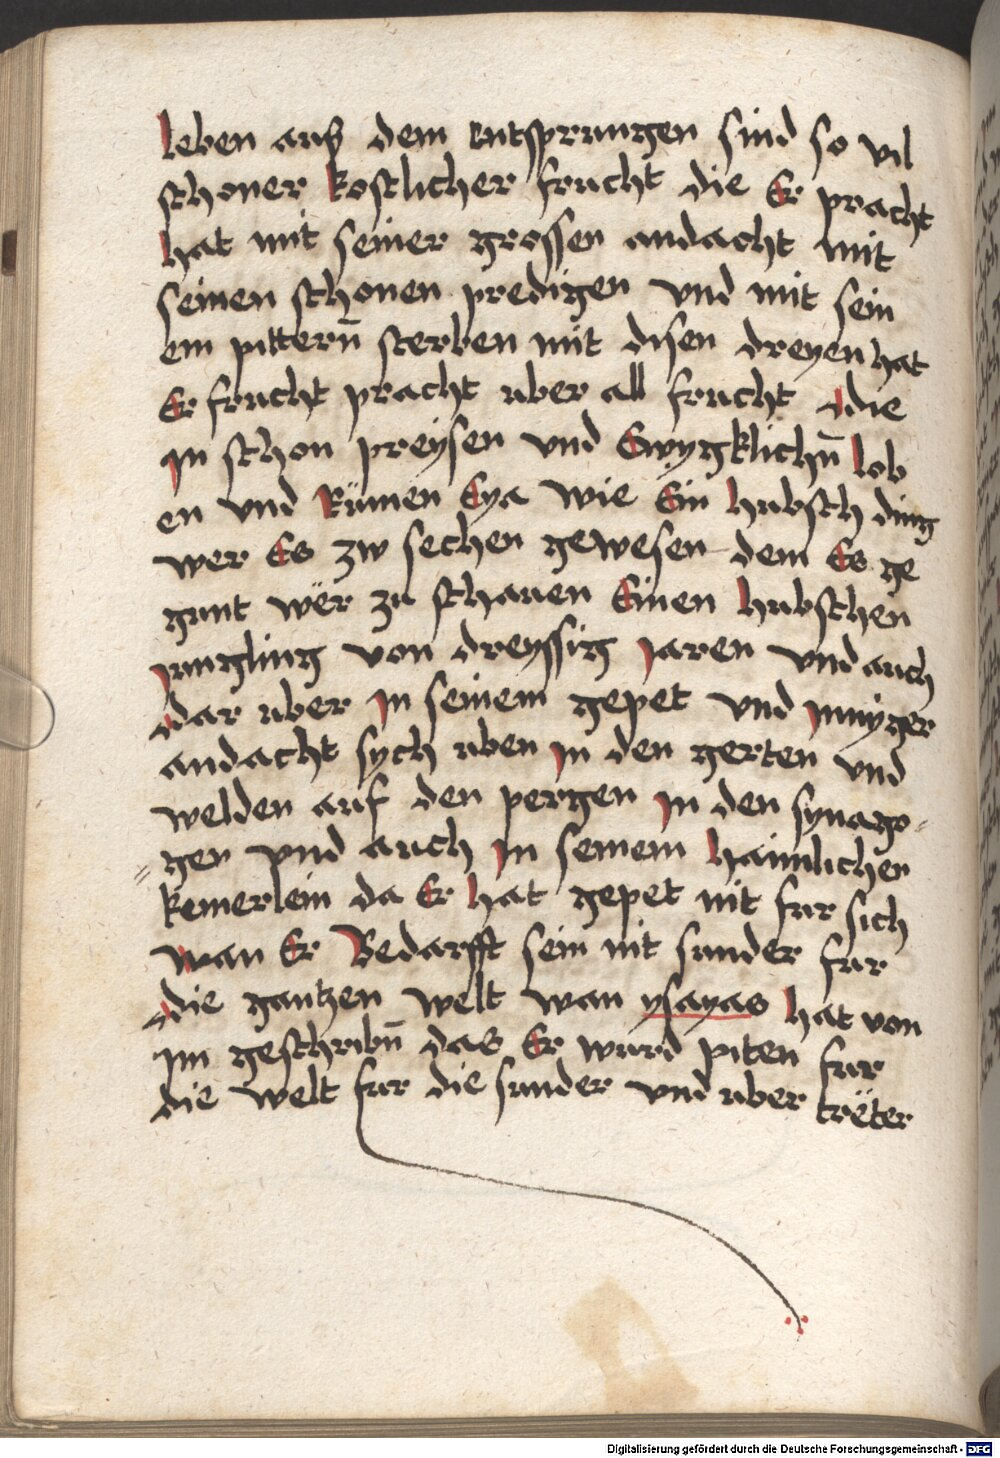 leben auß dem entsprungen sind so vil
schoner kostlicher frucht die Er pracht
hat mit seiner grossen andacht mit
seinen schonen predigen vnd mit sein
em pittern̄ sterben mit disen dreyen hat
Er frucht pracht uber all frucht die
jn schon preysen vnd Ewygklichn̄ lob
en vnd Rümen Eya wie Ein hubsch ding
wer Es zw sechen gewesen dem Es ge
gunt wër zu schauen Einen hubschen
jungling von dreyssig jaren vnd auch
dar uber jn seinem gepet vnd jnnyger
andacht sych uben jn den gerten vnd
welden auf den pergen jn den synago-
gen vnd auch jn seinem haimlichen
kemerlein da Er hat gepet nit fur sich
wan Er Bedarfft sein nit sunder fur
die gantzen welt wan ysayas hat von
jm geschribn̄ das Er wurd piten fur
die welt fur die sunder vnd uber trëter
Digitalisierung gefördert durch die Deutsche Forschungsgemeinschaft - DFG